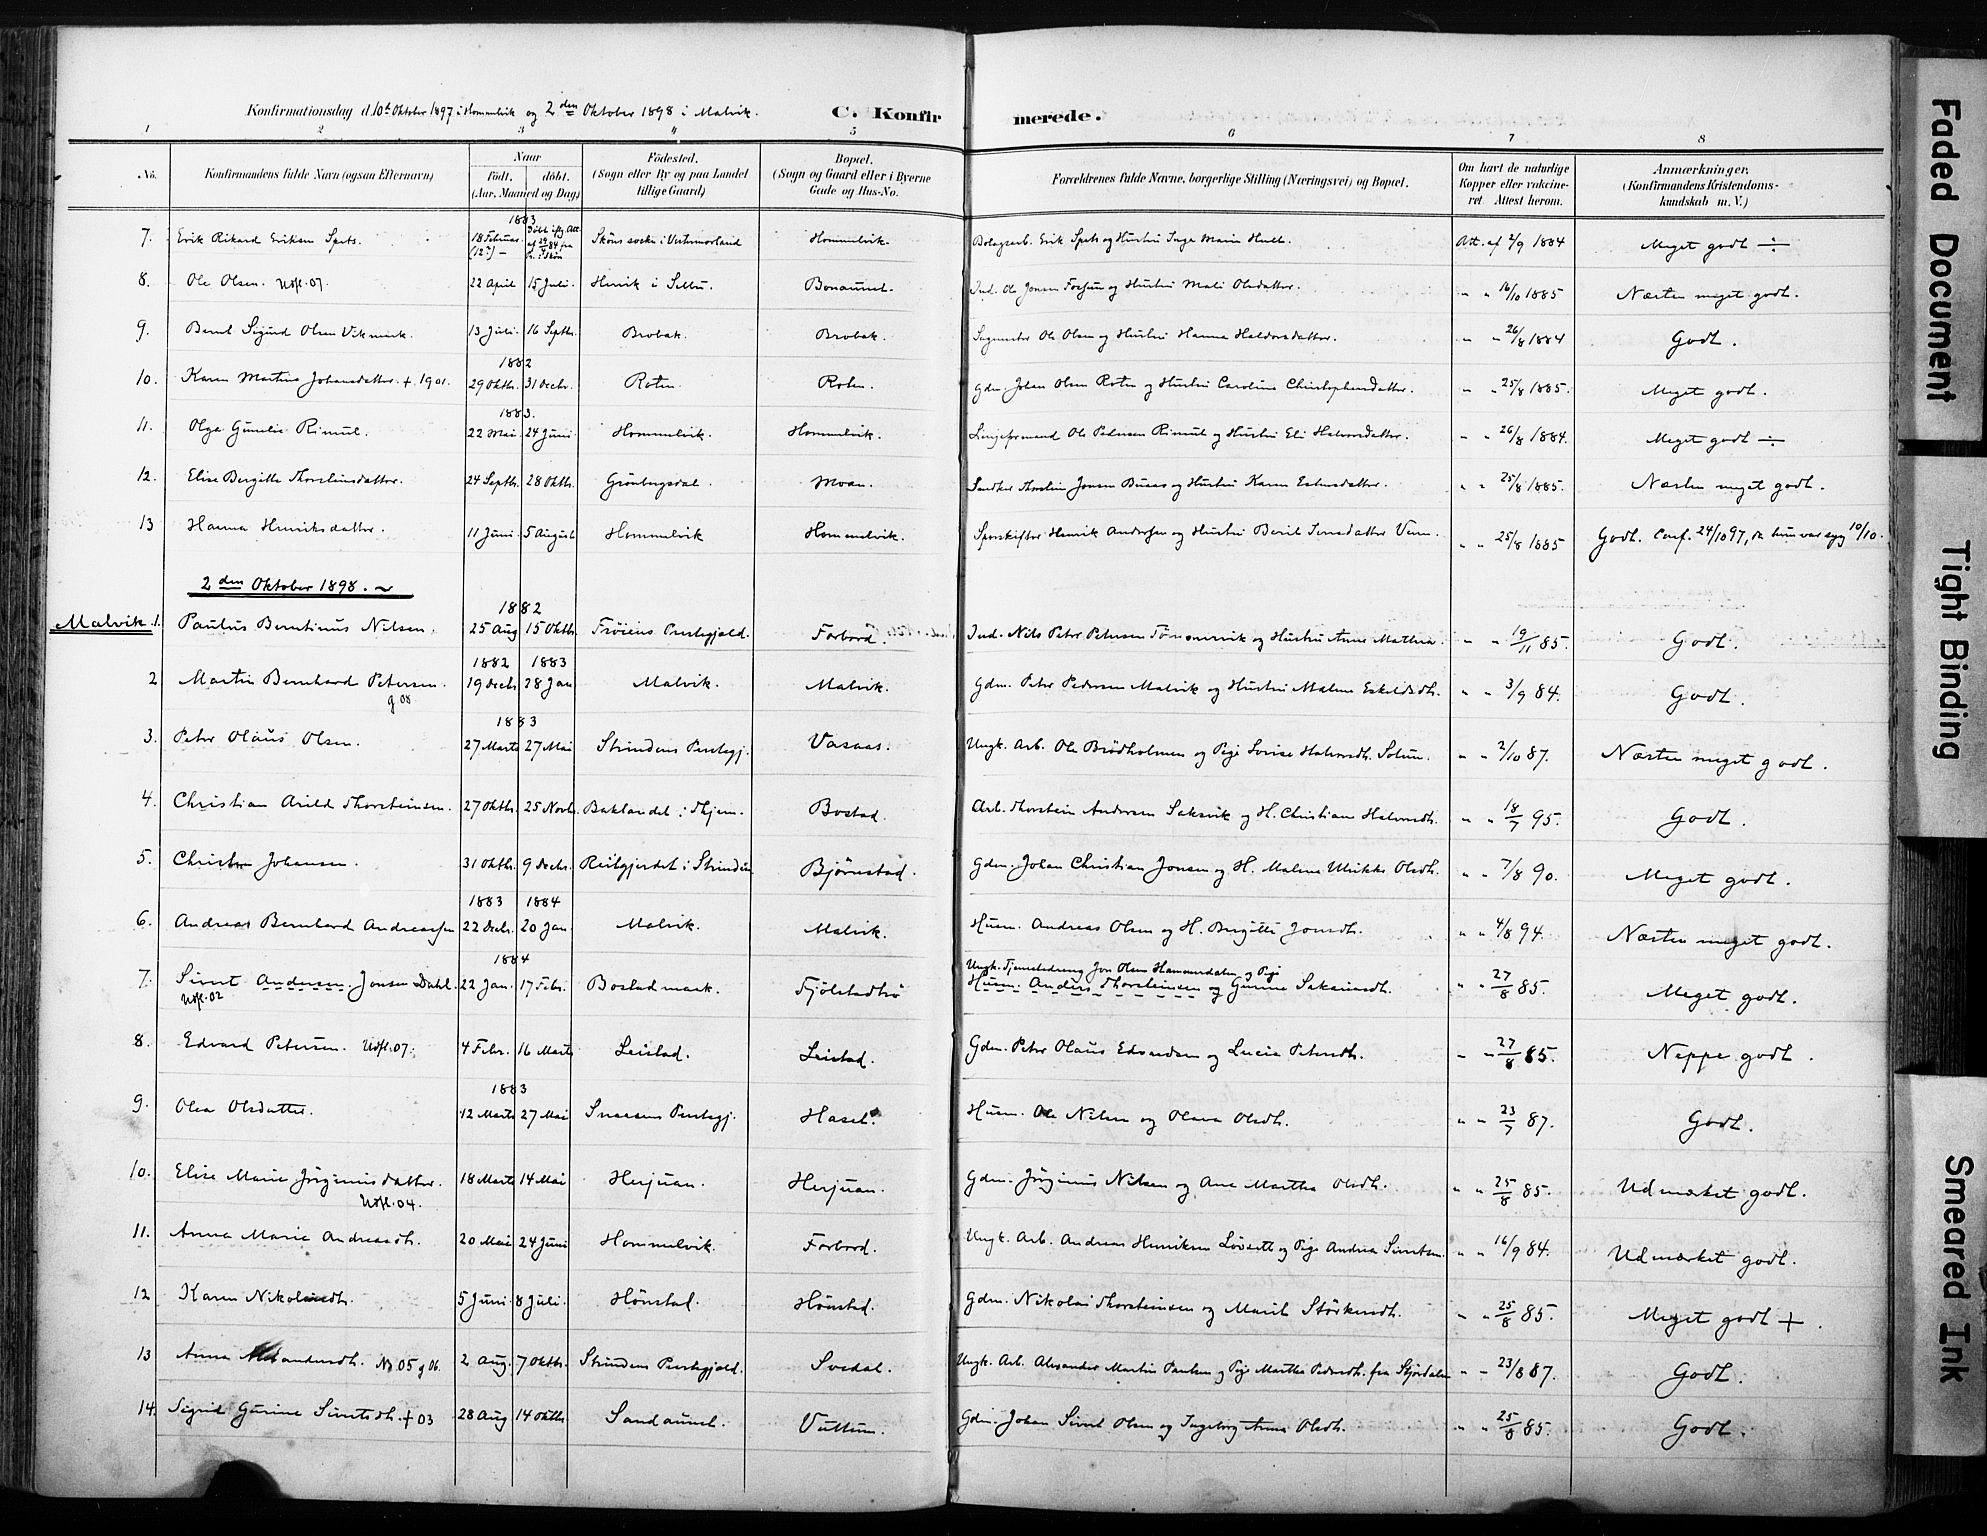 Konfirmationsdag d. 10de Oktober 1897 i Hommelvik og 2den Oktober 1898 i Malvik. C. Konfirmerede.
1 2 3 4 5 6 7 8
No. Konfirmandens fulde Navn (ogsaa Efternavn) Naar födt. döbt. (Aar, Maaned og Dag) Födested. (Sogn eller By og paa Landet tillige Gaard) Bopæl. (Sogn og Gaard eller i Byerne Gade og Hus-No. Forældrenes fulde Navne, borgerlige Stilling (Næringsvei) og Bopæl. Om havt de naturlige Kopper eller vakcineret. Attest herom. Anmærkninger. (Konfirmandens Kristendomskundskab m. V.)
1883
7. Erik Rikard Eriksen Spets. 18 Februar (12?) – Döbt ifg. Att. Sköns socken i Vesternorrland Hommelvik. Erik Spets og Hustru Inga Maria Att. af 2/9 1884 Meget godt ÷
8. Ole Olsen. Udfl. 07. 22 April 15 Juli. i Selbu. Bonaunet. Ind. Ole Jonsen og Hustru Mali Olsdatter. " " 16/10 1885 Næsten meget godt.
9. Bernt Sigurd Olsen Vikmark. 13 Juli. 16 Septbr. Brobak. Brobak. Ole Olsen og Hustru Hanna Haldorsdatter. " " 26/8 1884 Godt.
1882
10. Karen Martine Johansdatter. + 1901. 29 Oktbr. 31 Decbr. Roten. Roten. Gdm. Johan Olsen Roten og Hustru Caroline Christophersdatter. " " 25/8 1885. Meget godt.
1883.
11. Olga Gunelie Rimul. 22 Mai 24 Juni Hommelvik. Hommelvik. Ole Pedersen Rimul og Hustru Eli Halvorsdatter. " " 26/8 1884. Meget godt ÷
12. Elise Bergitte Thorsteinsdatter. 24 Septbr. 28 Oktbr. Grönbergsdal. Moan. Thorstein Jonsen Buaas og Hustru Karen Estensdatter. " " 25/8 1885. Næsten meget godt.
13 Hanna Henriksdatter. 11 Juni. 5 August Hommelvik Hommelvik. Sporskifter Henrik Andersen og Hustru Berit Iversdatter " " 25/8 1885 Godt. Conf. 24/10 97, da hun var syg 10/10.
2den Oktober 1898. ~
1882
Malvik. 1. Paulus Berntinus Nilsen. 25 Aug 15 Oktbr. Fröiens Prestegjæld. Forbord. Ind. Nils Peter Petersen og Hustru Anne Mathea " " 19/11 85. Godt.
1882 1883
2 Martin Bernhard Petersen. g 08 19 Decbr 28 Jan Malvik. Malvik. Gdm. Peter Pedersen Malvik og Hustru Malene Eskildsdtr. " " 3/9 84. Godt.
1883
3. Peter Olaus Olsen. 27 Marts 27 Mai Strindens Prestegj. Vasaas. Ungk. Arb. Ole Brödholmen og Pige Lovise Halvorsdtr. Solum. " " 2/10 87. Næsten meget godt.
4. Christian Arild Thorsteinsen. 27 Oktbr. 25 Novbr. Baklandet i Thjem. Bostad. Arb. Thorstein Andersen Saksvik og H. Christiane Halvorsdtr. " " 18/7 95. Godt.
5. Christen Johansen. 31 Oktbr. 9 Decbr. Reitgjerdet i Strinden Bjørnstad. Gdm. Johan Christian Jonsen og H. Malene Ulrikke Olsdtr. " " 7/8 90. Meget godt.
1883 1884
6. Andreas Bernhard Andreassen 22 Decbr. 20 Jan. Malvik. Malvik. Husm. Andreas Olsen og H. Birgitte Jonsdtr. " " 4/8 94. Næsten meget godt.
1884
7. Sivert Andersen Jonsen Dahl. 22 Jan. 17 Febr. Bostadmark. Fjölstadtrö Ungk. Tjenestedreng Jon Olsen Hammerdalen og Pige
Udfl. 02 Husm. Anders Thorsteinsen og Gurine Sakariasdtr. " " 27/8 85. Meget godt.
8. Edvard Petersen. Udfl. 07. 4 Febr. 16 Marts Leistad. Leistad. Gdm. Peter Olaus Edvardsen og Lucie Petersdtr. " " 27/8 85. Neppe godt.
1883
9. Olea Olsdatter. 12 Marts 27 Mai Snaasens Prestegj. Hasel. Husm. Ole Nilsen og Olava Olsdtr. " " 23/7 87. Godt.
10. Elise Marie Jörginusdatter. Udfl. 04. 18 Marts 14 Mai Herjuan. Herjuan. Gdm. Jörginus Nilsen og Ane Martha Olsdtr. " " 25/8 85. Udmærket godt.
11. Anna Marie Andreasdtr. 20 Mai 24 Juni Hommelvik. Forbord. Ungk. Arb. Andreas Henriksen Lövsett og Pige Andrea Sivertsen. " " 16/9 84. Udmærket godt.
12 Karen Nikolaisdtr. 5 Juni 8 Juli. Hönstad. Hönstad. Gdm. Nikolai Thorsteinsen og Marit Störkersdtr. " " 25/8 85. Meget godt +.
13 Anna Alexandersdtr. NB 05 g 06. 2 Aug. 7 Oktbr. Strindens Prestegjæld. Svedal. Ungk. Arb. Alexander Martin Paulsen og Pige Martha Pedersdtr. fra Stjördalen " " 23/8 87. Godt.
14. Sigrid Gurine Sivertsdtr. + 03 28 Aug 14 Oktbr. Sandaunet. Vuttun. Gdm. Johan Sivert Olsen og Ingeborg Anna Olsdtr. " " 25/8 85. Godt.
Faded Document
Tight Binding
Smeared Ink